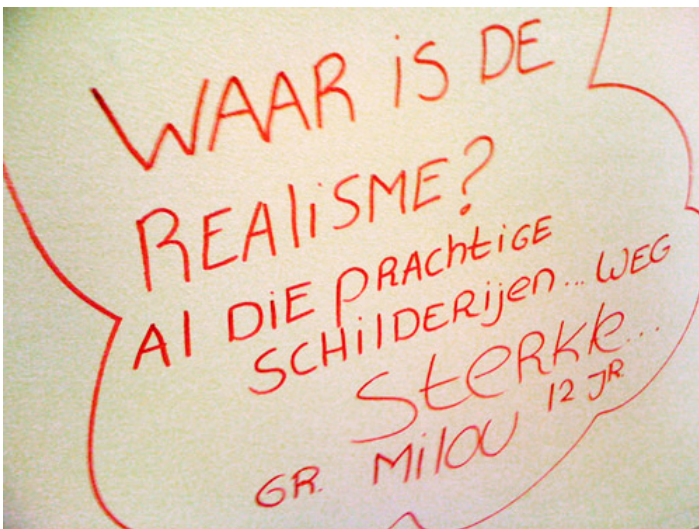 WAAR iS DE
REAliSME?
Al DiE PRACHtiGE
SCHilDERijen... WEG
SterKte...
GR. Milou 12 JR.